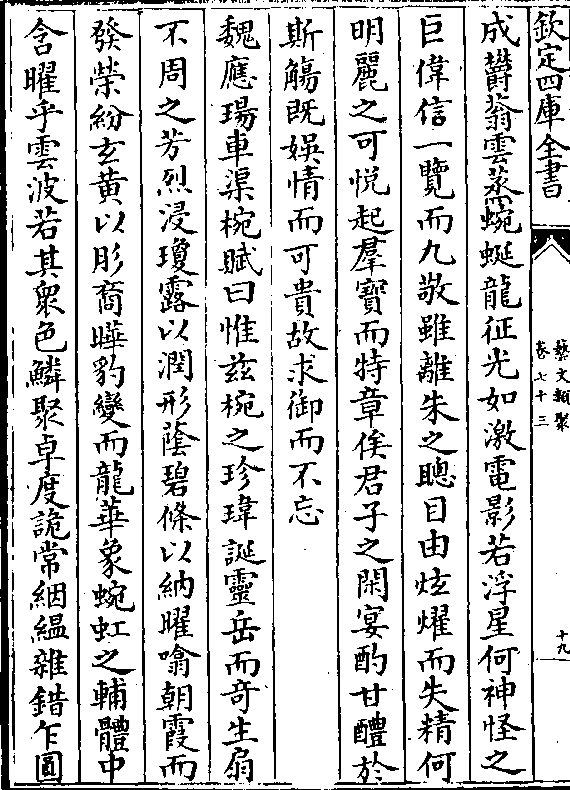 欽定四庫全書
藝文類聚
卷七十三
十九
成欝蓊雲蒸蜿蜒龍征光如激電影若浮星何神怪之
巨偉信一覽而九敬雖離朱之聰目由炫燿而失精何
明麗之可悦起羣寶而特章俟君子之閑宴酌甘醴於
斯觴既娛情而可貴故求御而不忘
魏應瑒車渠椀賦曰惟兹椀之珍瑋誕靈岳而竒生扇
不周之芳烈浸瓊露以潤形蔭碧條以納曜噏朝霞而
發榮紛玄黄以肜裔曄豹變而龍華象蜿虹之輔體中
含曜乎雲波若其衆色鱗聚卓度詭常絪緼雜錯乍圓